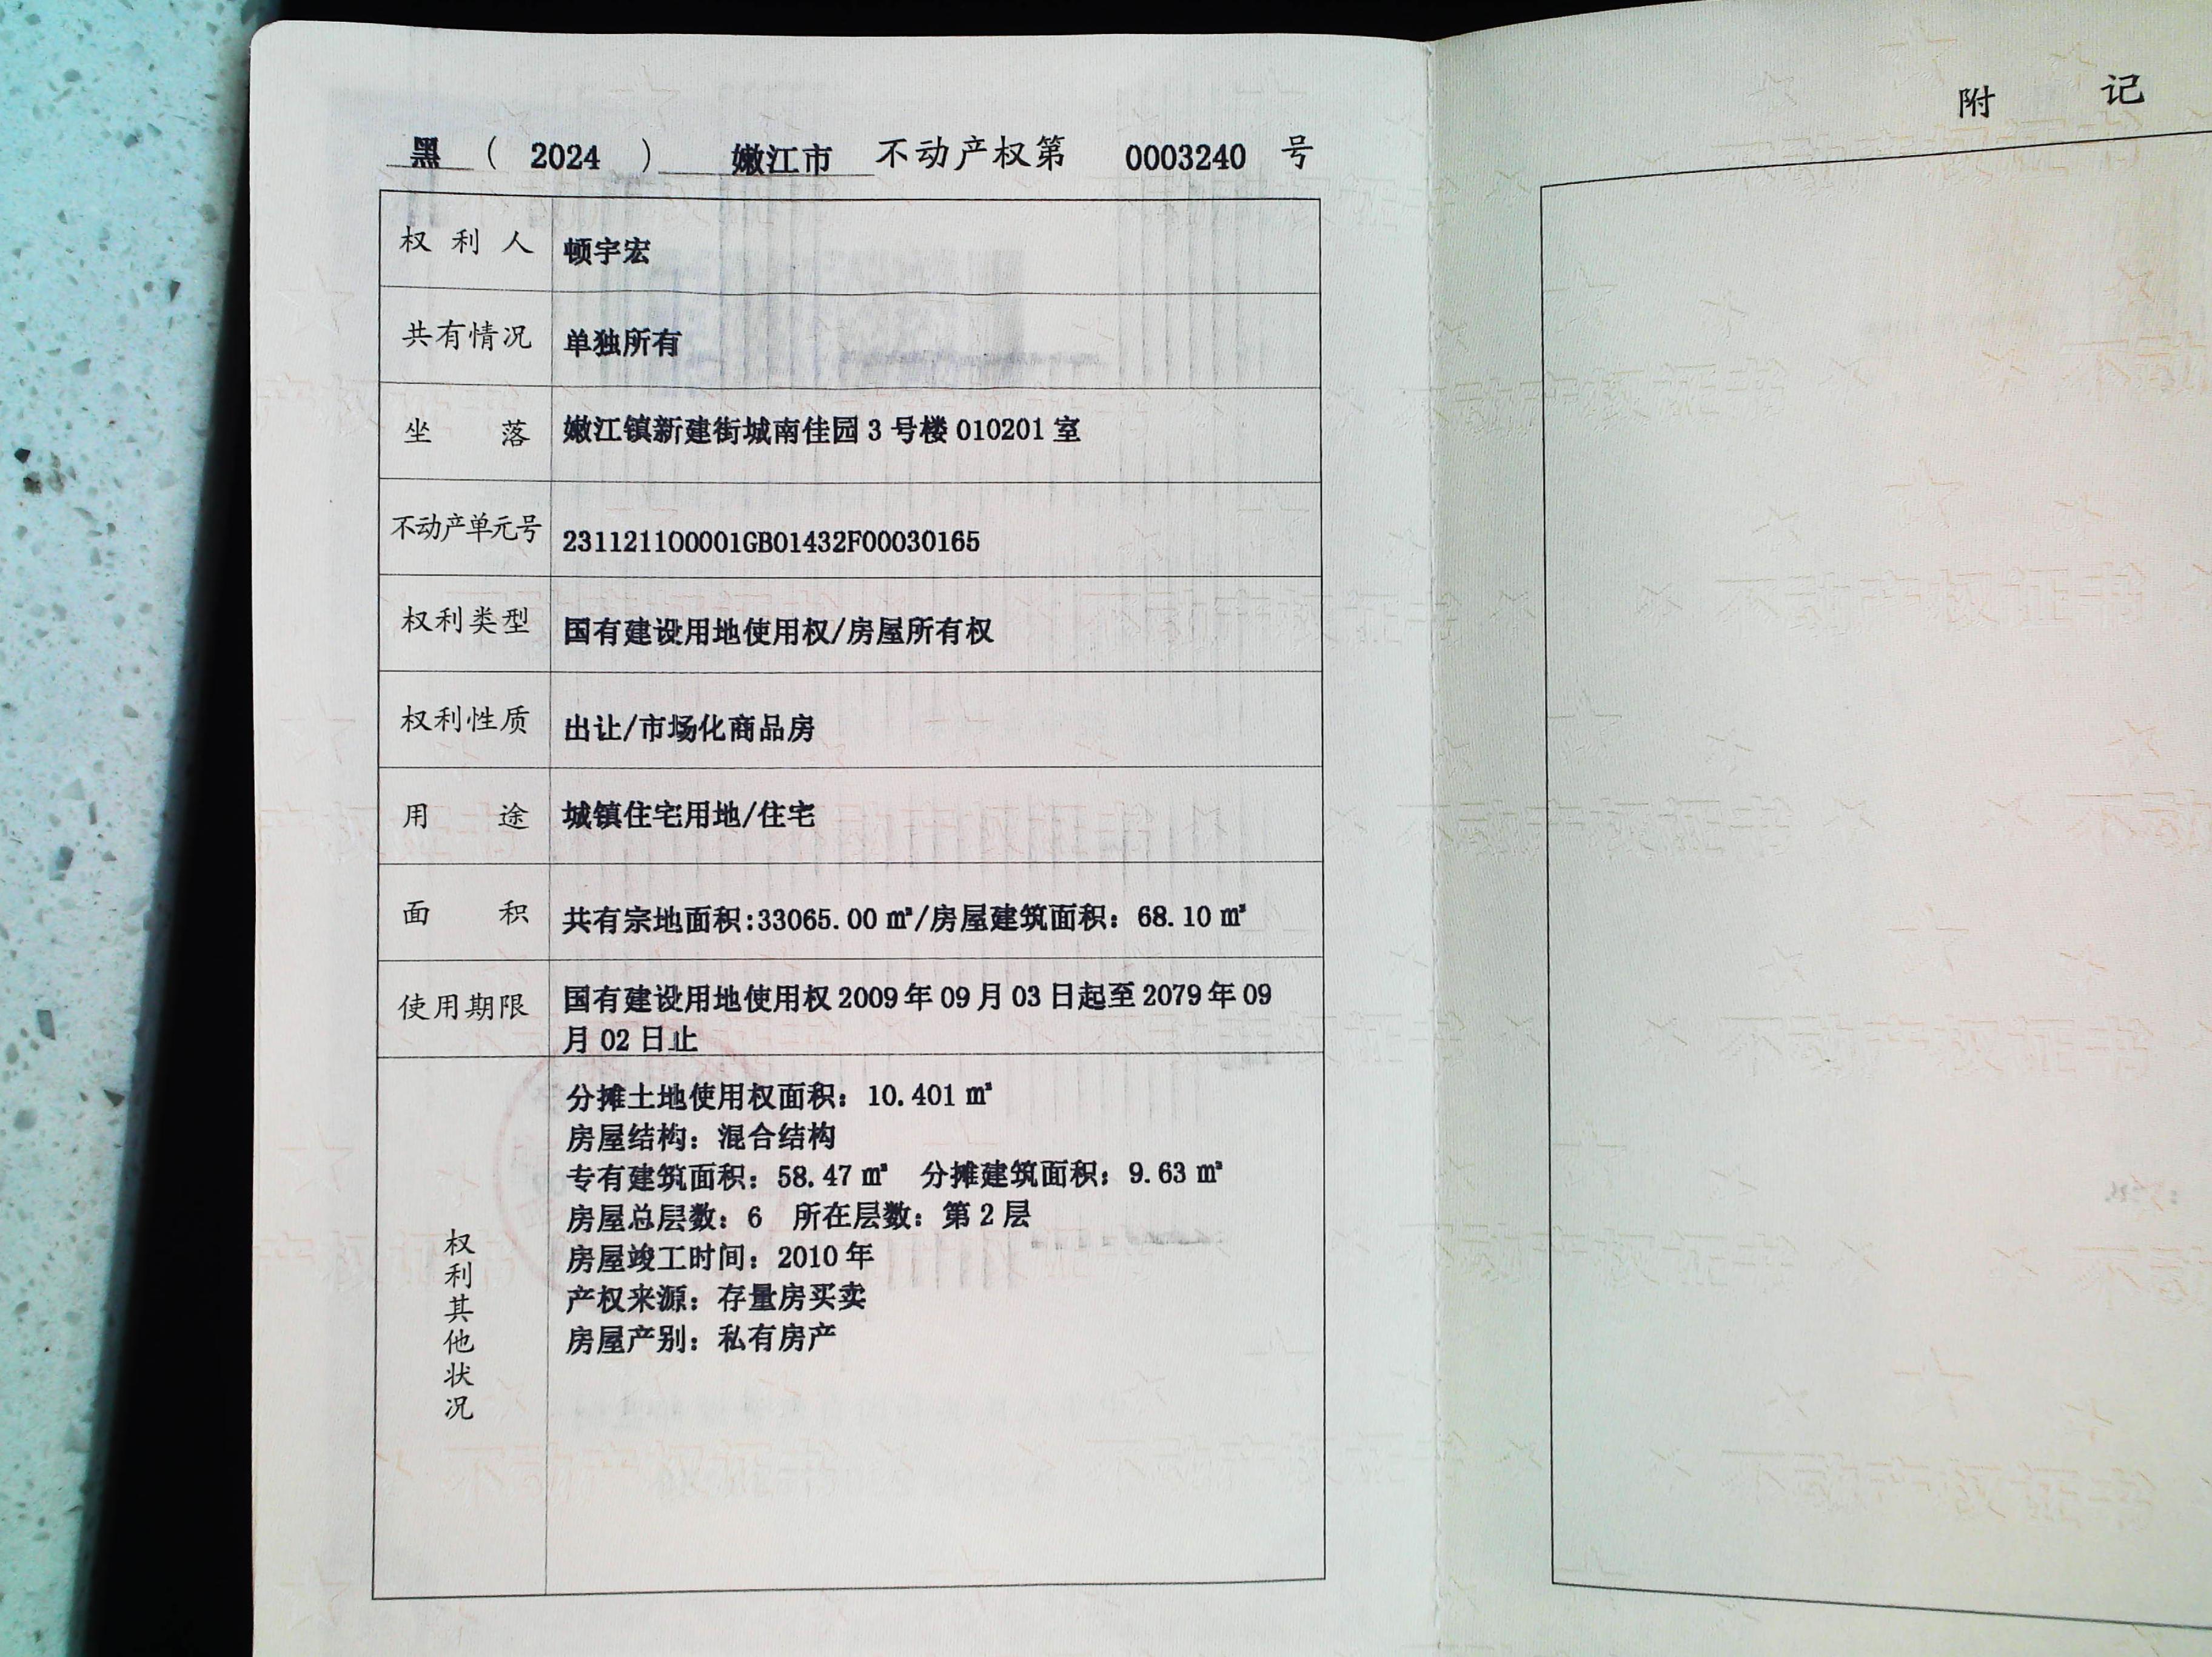 黑 ( 2024 ) 嫩江市 不动产权第 0003240 号
权利人 顿宇宏
共有情况 单独所有
坐落 嫩江镇新建街城南佳园 3 号楼 010201 室
不动产单元号 231121100001GB01432F00030165
权利类型 国有建设用地使用权/房屋所有权
权利性质 出让/市场化商品房
用途 城镇住宅用地/住宅
面积 共有宗地面积:33065.00 ㎡/房屋建筑面积：68.10 ㎡
使用期限 国有建设用地使用权 2009 年 09 月 03 日起至 2079 年 09
月 02 日止
权利其他状况
分摊土地使用权面积：10.401 ㎡
房屋结构：混合结构
专有建筑面积：58.47 ㎡ 分摊建筑面积：9.63 ㎡
房屋总层数：6 所在层数：第 2 层
房屋竣工时间：2010 年
产权来源：存量房买卖
房屋产别：私有房产
附记